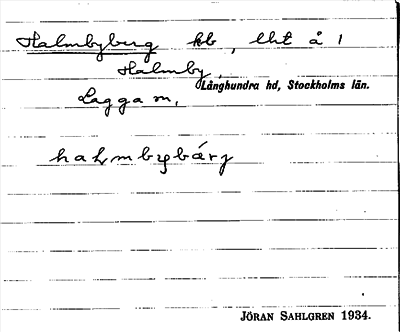 Halmbyberg kb, lht å 1
Halmby,
Långhundra hd, Stockholms län.
Lagga sn,
halmbybærj
JÖRAN SAHLGREN 1934.